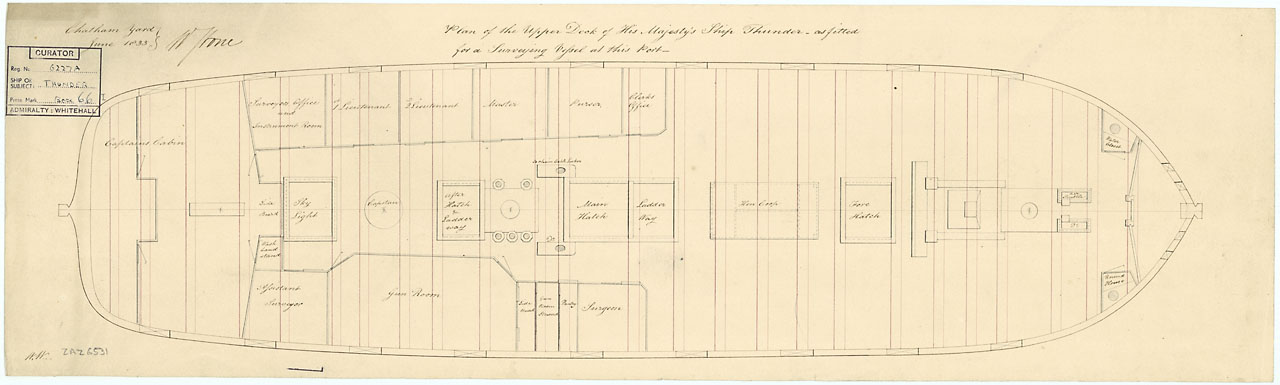 Plan of the Upper Deck of His Majesty's Ship Thunder - as fitted
for a Surveying Vessel at this Port -
Chatham Yard
June 1833
CURATOR
Reg. No. 6227A
SHIP OR
SUBJECT: THUNDER
Press Mark Box 66
ADMIRALTY: WHITEHALL
Captains Cabin
Surveyors Office
and
Instrument Room
1st Lieutenant
2d Lieutenant
Master
Purser
Clerks
Office
Side
Board
Sky
Light
Capstan
After
Hatch
&
Ladder
way
Main
Hatch
Ladder
Way
Hen Coop
Fore
Hatch
Assistant
Surveyor
Gun Room
Side
Board
Gun
Room
Pantry
Surgeon
Round
House
ZAZ6531